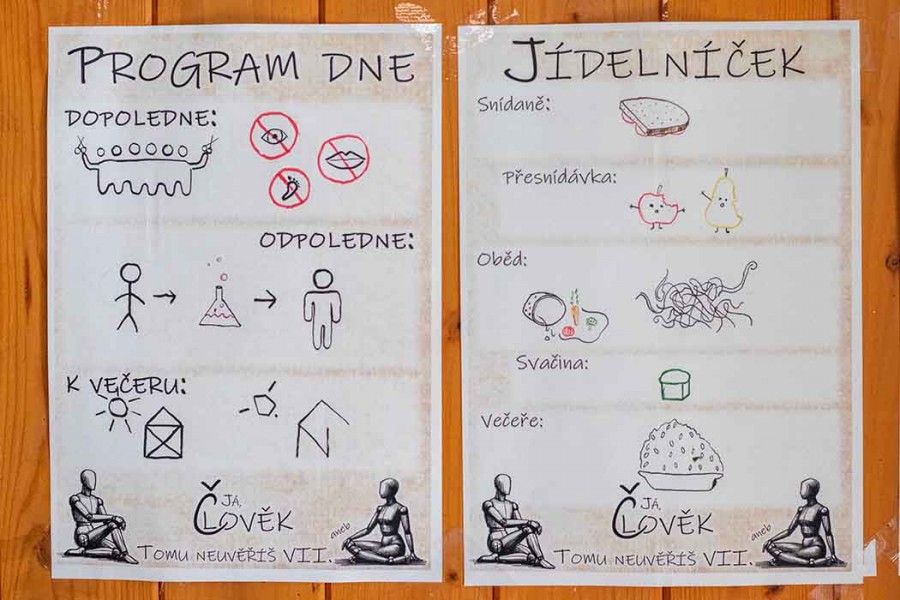 PROGRAM DNE
DOPOLEDNE:
ODPOLEDNE:
K VEČERU:
JÁ,
ČLOVĚK
aneb
TOMU NEUVĚŘÍŠ VII.
JÍDELNÍČEK
Snídaně:
Přesnídávka:
Oběd:
Svačina:
Večeře:
JÁ,
ČLOVĚK
aneb
TOMU NEUVĚŘÍŠ VII.